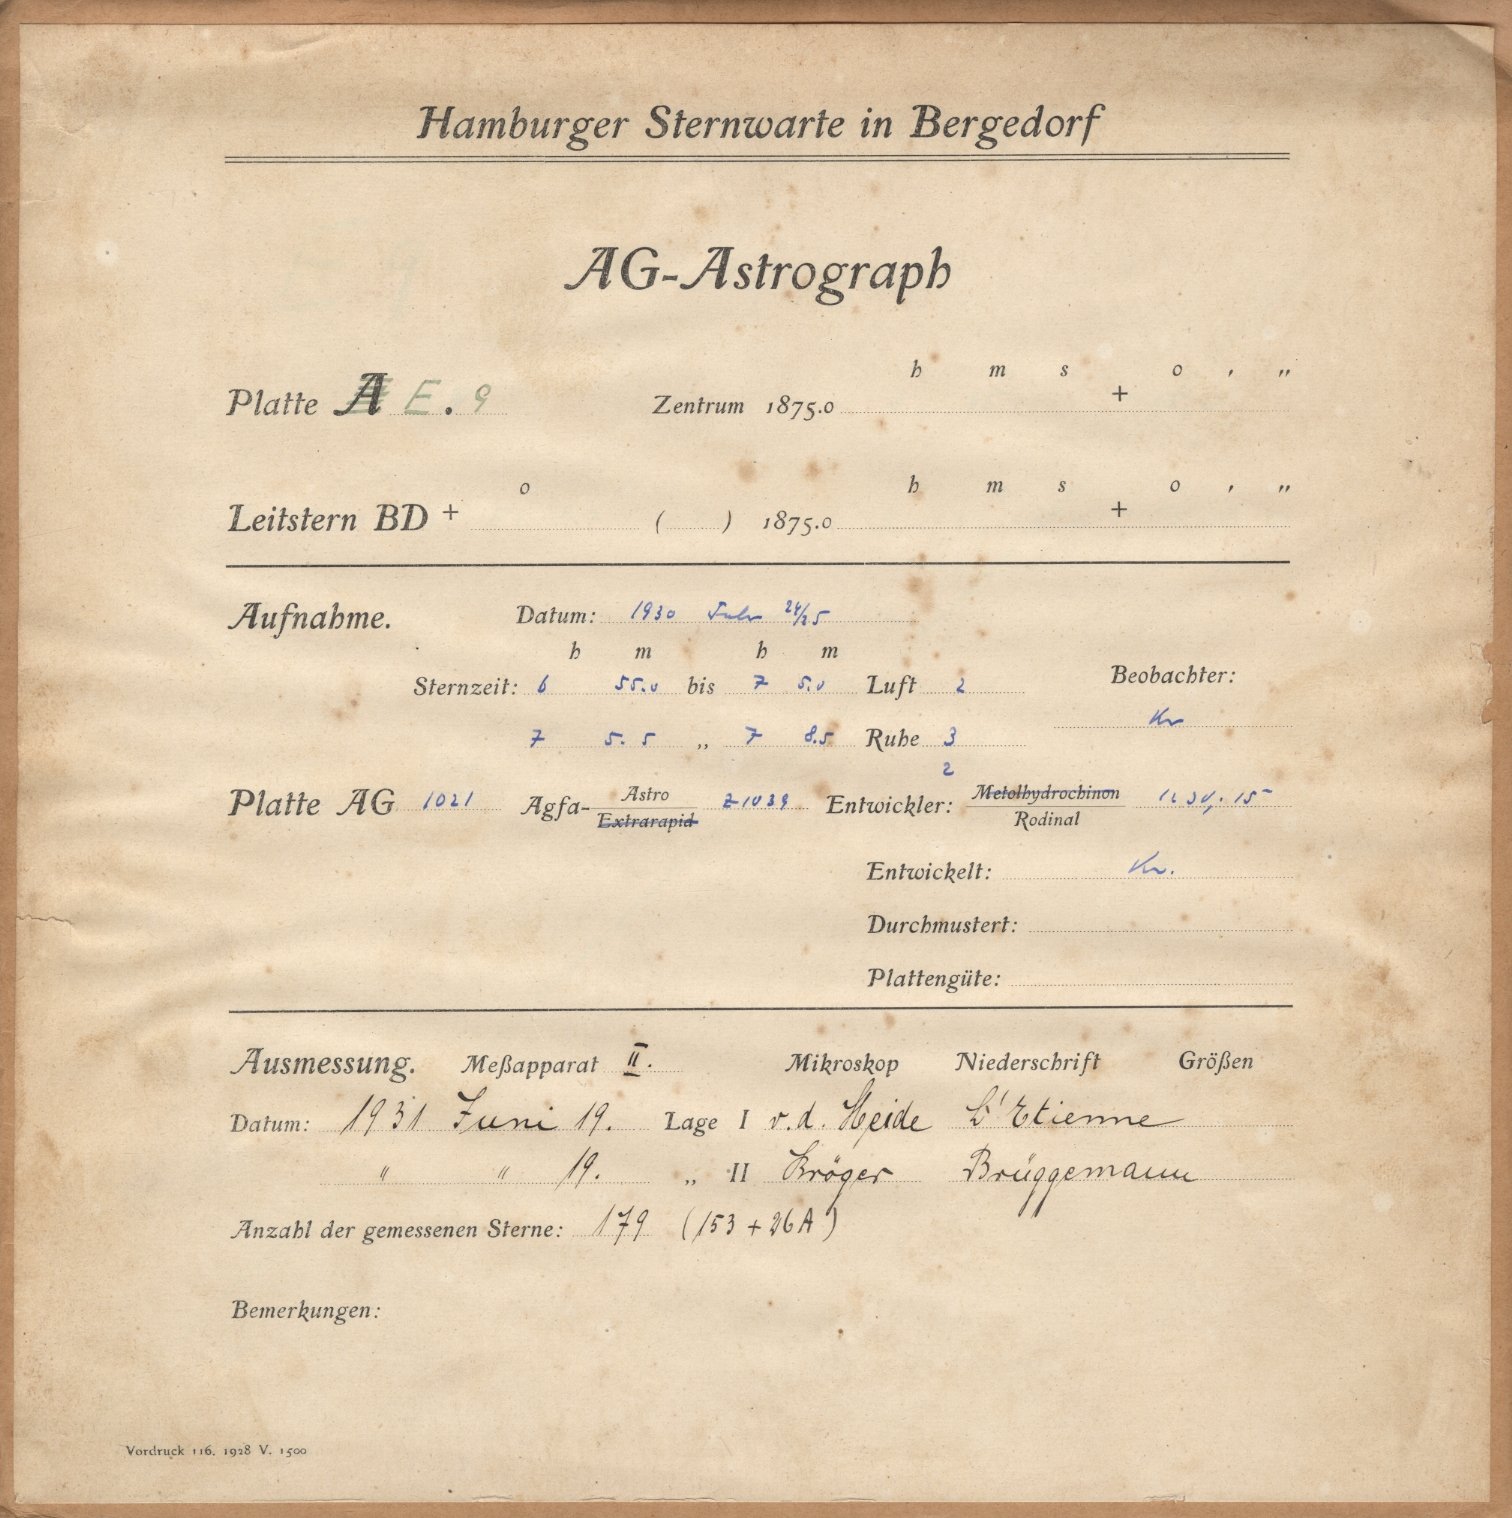 Hamburger Sternwarte in Bergedorf
AG-Astrograph
h m s o , „
Platte A E . 9 Zentrum 1875.0 +
o h m s o , „
Leitstern BD + ( ) 1875.0 +
Aufnahme. Datum: 1930 24/25
h m h m
Sternzeit: 6 55.0 bis 7 5.0 Luft 2 Beobachter:
Kr
7 5.5 „ 7 8.5 Ruhe 3
2
Platte AG 1021 Agfa- Astro Extrarapid Z1039 Entwickler: Metolhydrochinon Rodinal
Entwickelt: Kr.
Durchmustert:
Plattengüte:
Ausmessung. Meßapparat II. Mikroskop Niederschrift Größen
Datum: 1931 Juni 19. Lage I v.d. Heide L'Etienne
" " 19. „ II Kröger Brüggemann
Anzahl der gemessenen Sterne: 179 (153 + 26A)
Bemerkungen:
Vordruck 116. 1928 V. 1500